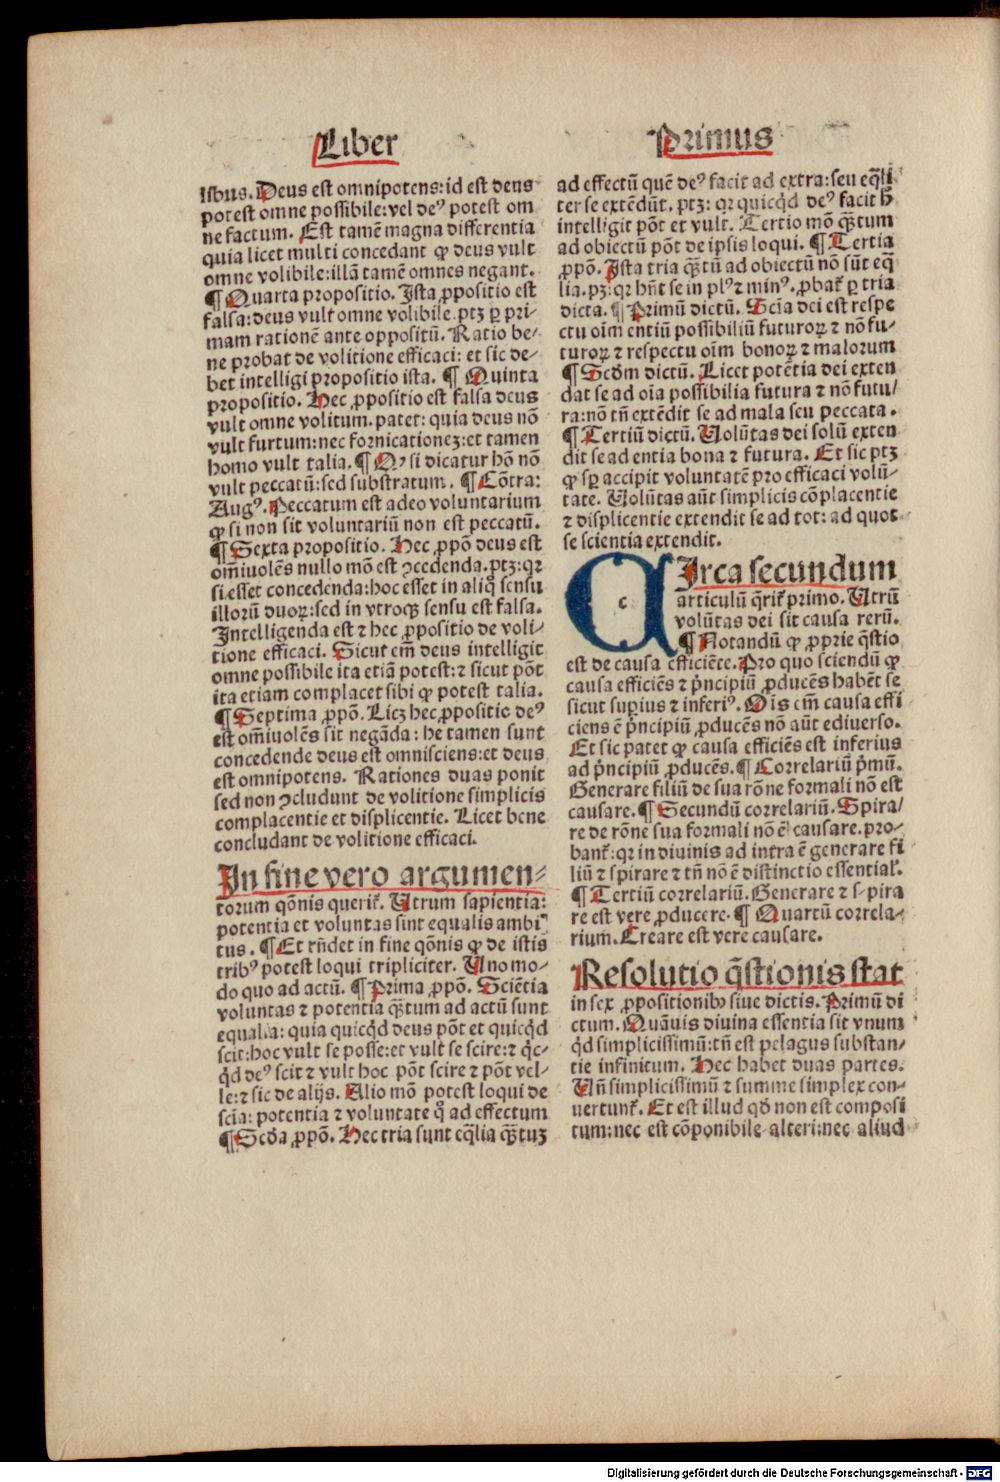 Liber
Primus
lsbus. Deus est omnipotens: id est deus
potest omne possibile: vel deꝰ potest om
ne factum. Est tamē magna differentia
quia licet multi concedant ꝙ deus vult
omne volibile: illā tamē omnes negant.
¶ Quarta propositio. Ista ꝓpositio est
falsa: deus vult omne volibile. ptꝫ ꝑ pri-
mam rationē ante oppositū. Ratio be-
ne probat de volitione efficaci: et sic de-
bet intelligi propositio ista. ¶ Quinta
propositio. Hec ꝓpositio est falsa deus
vult omne volitum. patet: quia deus nō
vult furtum: nec fornicationeꝫ: et tamen
homo vult talia. ¶ Qꝫ si dicatur hō nō
vult peccatū: sed substratum. ¶ Cōtra:
Augꝰ. Peccatum est adeo voluntarium
ꝙ si non sit voluntariū non est peccatū.
¶ Sexta propositio. Hec ꝓpō deus est
om̄iuolēs nullo mō est ꝯcedenda. ptꝫ: qꝛ
si esset concedenda: hoc esset in aliq̊ sensu
illorū duoꝝ: sed in vtroqꝫ sensu est falsa.
Intelligenda est ⁊ hec ꝓpositio de voli-
tione efficaci. Sicut em̄ deus intelligit
omne possibile ita etiā potest: ⁊ sicut pōt
ita etiam complacet sibi ꝙ potest talia.
¶ Septima ꝓpō. Licꝫ hec ꝓpositio deꝰ
est om̄iuolēs sit negāda: he tamen sunt
concedende deus est omnisciens: et deus
est omnipotens. Rationes duas ponit
sed non ꝯcludunt de volitione simplicis
complacentie et displicentie. Licet bene
concludant de volitione efficaci.
In fine vero argumen-
torum qōnis querit᷑. Utrum sapientia:
potentia et voluntas sint equalis ambi
tus. ¶ Et rn̄det in fine qōnis ꝙ de istis
tribꝰ potest loqui tripliciter. Uno mo-
do quo ad actū. ¶ Prima ꝓpō. Sciētia
voluntas ⁊ potentia qȝ̄tum ad actū sunt
equalia: quia quicq̇d deus pōt et quicq̇d
scit: hoc vult se posse: et vult se scire: ⁊ q̇c-
q̇d deꝰ scit ⁊ vult hoc pōt scire ⁊ pōt vel-
le: ⁊ sic de alijs. Alio mō potest loqui de
scīa: potentia ⁊ voluntate q̊ ad effectum
¶ Scd̄a ꝓpō. Hec tria sunt eq̄lia qȝ̄tuꝫ
ad effectū quē deꝰ facit ad extra: seu eq̄li
ter se extēdūt. ptꝫ: qꝛ quicq̇d deꝰ facit ħ
intelligit pōt et vult. Tertio mō qȝ̄tum
ad obiectū pōt de ipsis loqui. ¶ Tertia
ꝓpō. Ista tria qȝ̄tū ad obiectū nō sūt eq̄
lia. pꝫ: qꝛ hn̄t se in plꝰ ⁊ minꝰ. ꝓbat᷑ ꝑ tria
dicta. ¶ Primū dictū. Scīa dei est respe
ctu oīm entiū possibiliū futuroꝝ ⁊ nō fu-
turoꝝ ⁊ respectu oīm bonoꝝ ⁊ malorum
¶ Scd̄m dictū. Licet potētia dei exten
dat se ad oīa possibilia futura ⁊ nō futu-
ra: nō tn̄ extēdit se ad mala seu peccata.
¶ Tertiū dictū. Uolūtas dei solū exten
dit se ad entia bona ⁊ futura. Et sic ptꝫ
ꝙ sꝑ accipit voluntatē pro efficaci volū-
tate. Uolūtas aūt simplicis cōplacentie
⁊ displicentie extendit se ad tot: ad quot
se scientia extendit.
c
Irca secundum
articulū q̄rit᷑ primo. Utrū
volūtas dei sit causa rerū.
¶ Notandū ꝙ ꝓprie q̄stio
est de causa efficiēte. Pro quo sciendū ꝙ
causa efficiēs ⁊ pͥncipiū ꝓducēs habēt se
sicut supius ⁊ inferiꝰ. Oīs em̄ causa effi
ciens ē pͥncipiū ꝓducēs nō aūt ediuerso.
Et sic patet ꝙ causa efficiēs est inferius
ad pͥncipiū ꝓducēs. ¶ Correlariū pͥmū.
Generare filiū de sua rōne formali nō est
causare. ¶ Secundū correlariū. Spira-
re de rōne sua formali nō ē causare. pro-
bant᷑: qꝛ in diuinis ad intra ē generare fi
liū ⁊ spirare ⁊ tn̄ nō ē distinctio essential᷑.
¶ Tertiū correlariū. Generare ⁊ spira
re est vere ꝓducere. ¶ Quartū correla-
rium. Creare est vere causare.
Resolutio q̄stionis stat
in sex ꝓpositionibꝫ siue dictis. Primū di
ctum. Quāuis diuina essentia sit vnum
q̇d simplicissimū: tn̄ est pelagus substan-
tie infinitum. Hec habet duas partes.
Un̄ simplicissimū ⁊ summe simplex con-
uertunt᷑. Et est illud qd̄ non est composi
tum: nec est cōponibile alteri: nec aliud
Digitalisierung gefördert durch die Deutsche Forschungsgemeinschaft - DFG